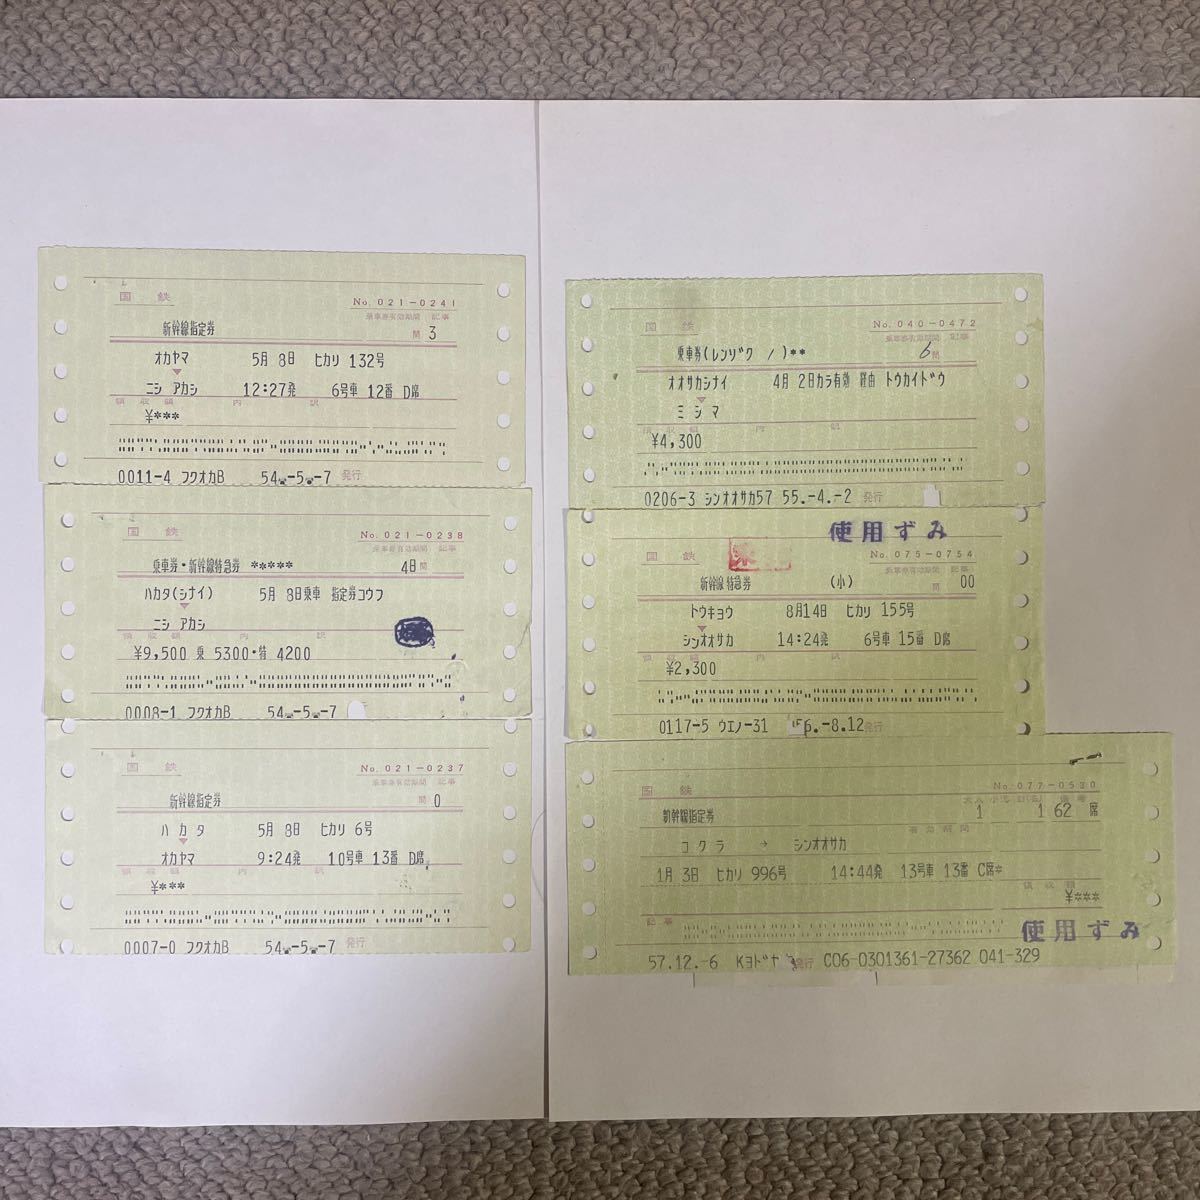 国鉄
No. 021-0241
乗車券有効期間 記事
新幹線指定券
間 3
オカヤマ 5月 8日 ヒカリ 132号
ニシ アカシ 12:27発 6号車 12番 D席
領収額 内訳
¥***
0011-4 フクオカB 54.-5.-7 発行
国鉄
No. 021-0238
乗車券有効期間 記事
乗車券・新幹線特急券 *****
4日間
ハカタ(シナイ) 5月 8日乗車 指定券コウフ
ニシ アカシ
領収額 内訳
¥9,500 乗 5300・特 4200
0008-1 フクオカB 54.-5.-7
国鉄
No. 021-0237
乗車券有効期間 記事
新幹線指定券
間 0
ハカタ 5月 8日 ヒカリ 6号
オカヤマ 9:24発 10号車 13番 D席
領収額 内訳
¥***
0007-0 フクオカB 54.-5.-7 発行
国鉄
No. 040-0472
乗車券有効期間 記事
乗車券(レンゾク / )**
6間
オオサカシナイ 4月 2日カラ有効 経由 トウカイドウ
ミシマ
領収額 内訳
¥4,300
0206-3 シンオオサカ57 55.-4.-2 発行
使用ずみ
国鉄
No. 075-0754
乗車券有効期間 記事
新幹線特急券 (小)
間 00
トウキョウ 8月14日 ヒカリ 155号
シンオオサカ 14:24発 6号車 15番 D席
領収額 内訳
¥2,300
0117-5 ウエノ-31 56.-8.12発行
国鉄
No. 077-0530
新幹線指定券
1 1 62 席
有効期間
コクラ → シンオオサカ
1月 3日 ヒカリ 996号 14:44発 13号車 13番 C席*
領収額
¥***
記事
使用ずみ
57.12.-6 Kヨドヤ 発行 C06-0301361-27362 041-329